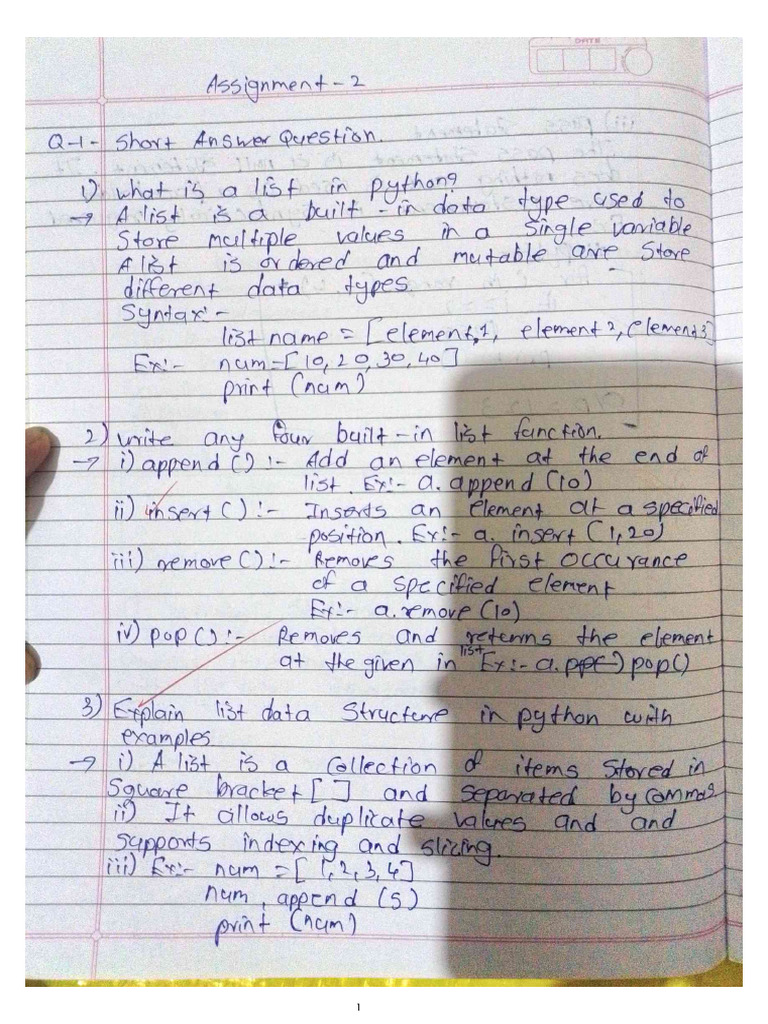 DATE
Assignment - 2
Q-1- Short Answer Question.
1) what is a list in python?
→ A list is a built-in data type used to
Store multiple values in a Single variable
A list is ordered and mutable are Store
different data types
Syntax:-
list name = [element,1, element 2, element3]
Ex:- num=[10,20,30,40]
print (num)
2) write any four built-in list function.
→ i) append () :- Add an element at the end of
list. Ex:- a. append (10)
ii) insert () :- Inserts an element at a specified
position. Ex:- a. insert (1,20)
iii) remove () :- Removes the first occurance
of a specified element
Ex:- a. remove (10)
iv) pop () :- Removes and returns the element
at the given in list Ex:- a. pop()
3) Explain list data Structure in python with
examples
→ i) A list is a collection of items Stored in
Square bracket [ ] and separated by commas
ii) It allows duplicate values and and
supports indexing and slicing.
iii) Ex:- num = [1,2,3,4]
num, append (5)
print (num)
1